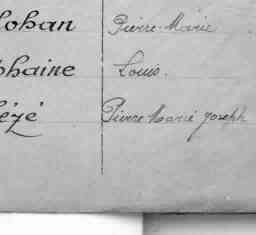 lohan Pierre-Marie
phaine Louis.
ézé Pierre Marie Joseph